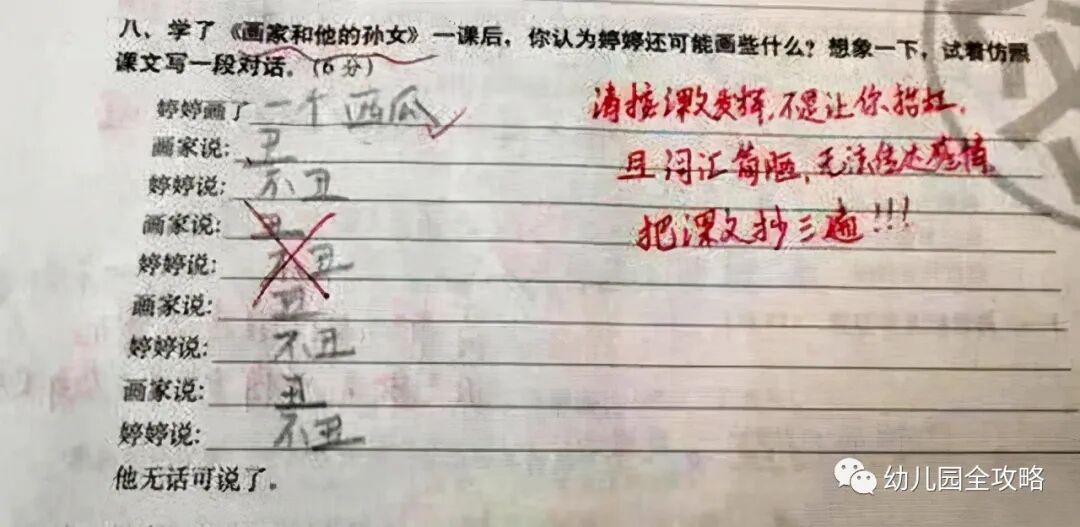 八、学了《画家和他的孙女》一课后，你认为婷婷还可能画些什么？想象一下，试着仿照
课文写一段对话。(6分)
婷婷画了一个西瓜
画家说:丑
婷婷说:不丑
画家说:丑
婷婷说:不丑
画家说:丑
婷婷说:不丑
画家说:丑
婷婷说:不丑
他无话可说了。
请按课文发挥,不是让你抬杠,
且词汇简陋,无法传达感情
把课文抄三遍!!!
幼儿园全攻略